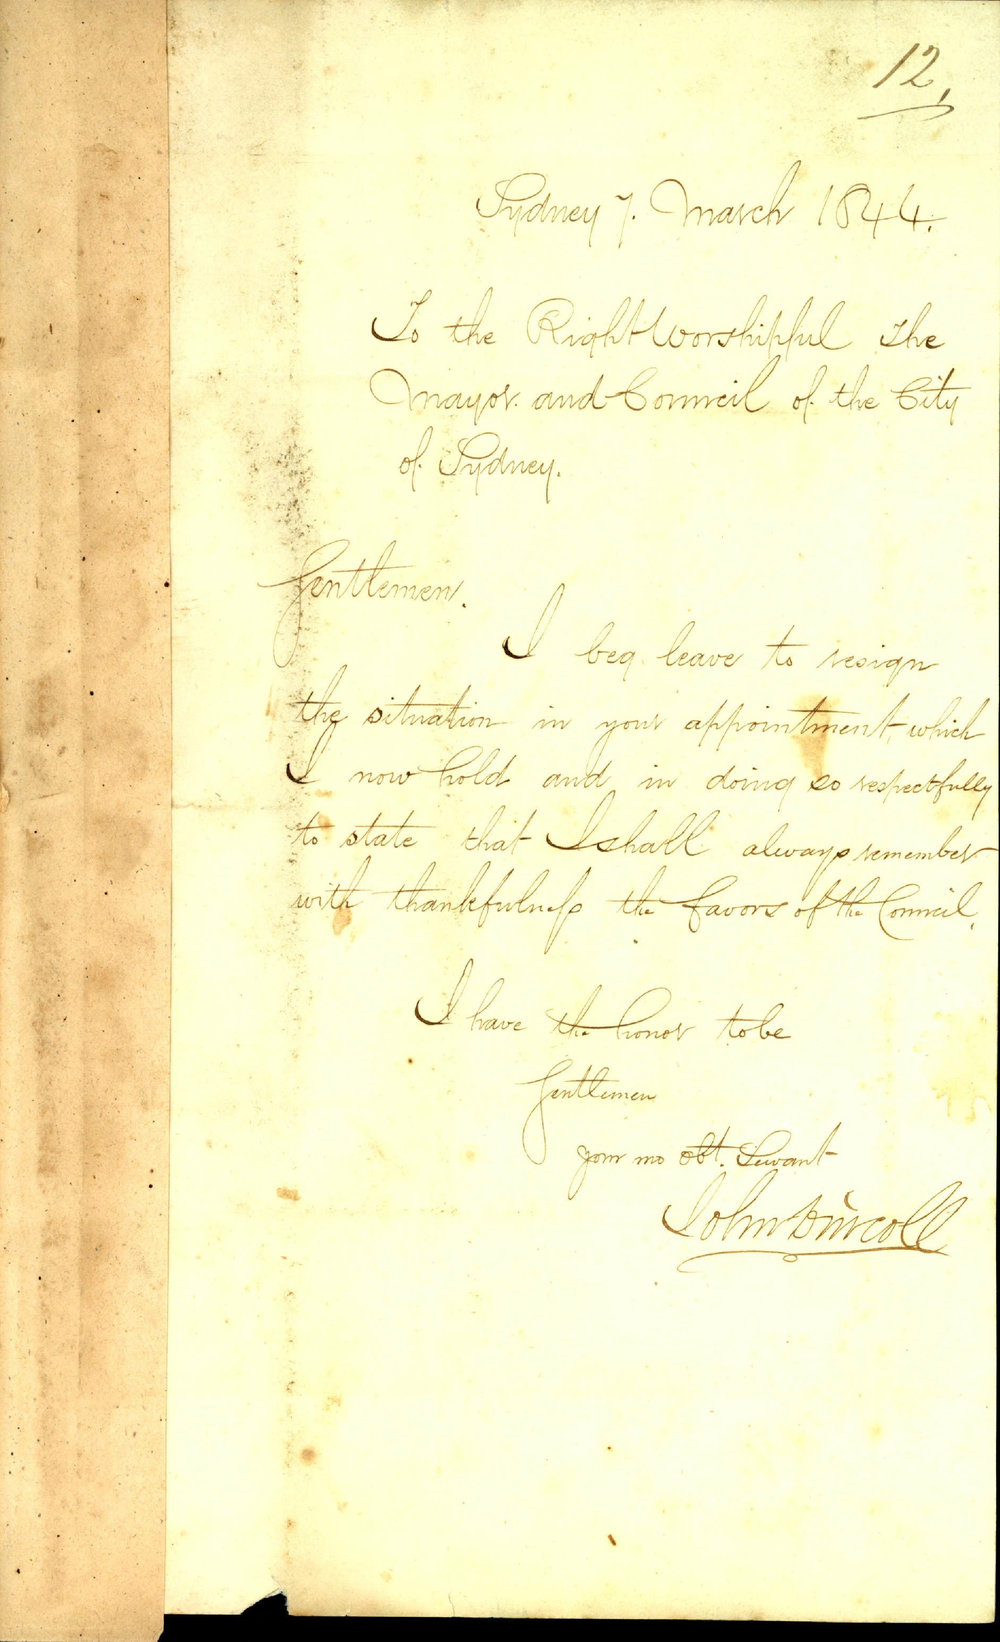 12,
Sydney 7. March 1844.
To the Right Worshipful The
Mayor. and Council of. the City
of. Sydney.
Gentlemen.
I beg leave to resign
the situation in your appointment, which
I now hold and in doing so respectfully
to state that I shall always remember
with thankfulness the favors of the Council.
I have the honor to be
Gentlemen
your mo obt. Servant
John Driscoll